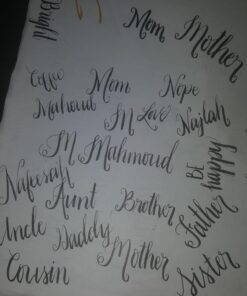 Bright
Mom Mother
Coffee Mom Nope
Mahoud M Love Najlah
M Mahmoud
BE
happy
Nafeesah
Aunt Brother Father
Uncle Daddy Mother
Cousin Sister